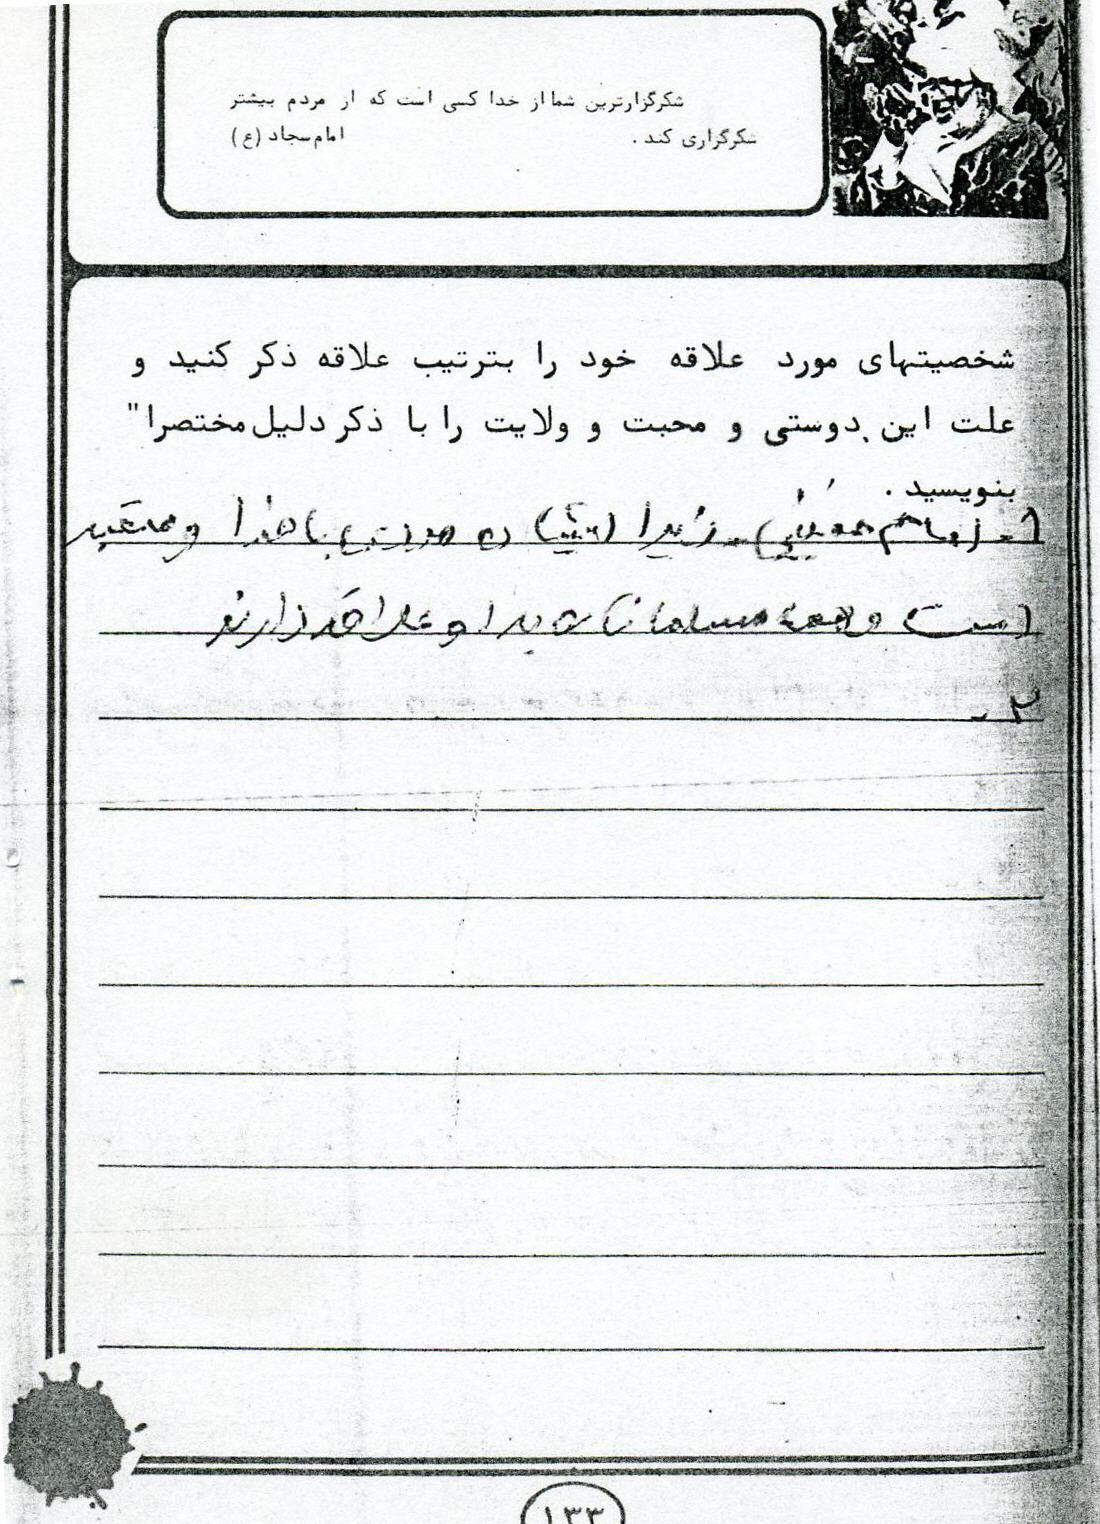 شکرگزارترین شما از خدا کسی است که از مردم بیشتر
شکرگزاری کند . امام سجاد (ع)
شخصیتهای مورد علاقه خود را بترتیب علاقه ذکر کنید و
علت این دوستی و محبت و ولایت را با ذکر دلیل مختصرا"
بنویسید .
۱- امام خمینی - زیرا ایشان با خدا و
است و همه مسلمانان به او علاقه دارند
۲-
۱۳۳